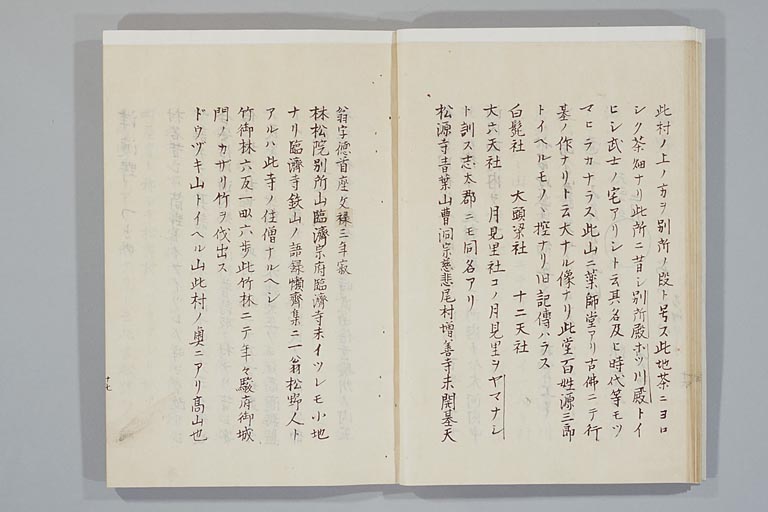 此村ノ上ノ方ヲ別所ノ段ト号ス此地茶ニヨロ
シク茶畑ナリ此所ニ昔シ別所殿ホツ川殿トイ
ヒシ武士ノ宅アリシト云其名及ヒ時代等モツ
マヒラカナラス此山ニ薬師堂アリ古佛ニテ行
基ノ作ナリト云大ナル像ナリ此堂百姓源三郎
トイヘルモノノ控ナリ旧記傳ハラス
白髭社 大頭梁社 十二天社
大六天社 月見里社コノ月見里ヲヤマナシ
ト訓ス志太郡ニモ同名アリ
松源寺青葉山曹洞宗慈悲尾村増善寺末開基天
翁字徳首座文禄三年寂
林松院別所山臨濟宗府臨濟寺末イツレモ小地
ナリ臨濟寺鉄山ノ語録懶齊集ニ一翁松野人ト
アルハ此寺ノ住僧ナルヘシ
竹御林六反一畝六歩此竹林ニテ年々駿府御城
門ノカザリ竹ヲ伐出ス
ドウヅキ山トイヘル山此村ノ奥ニアリ高山也